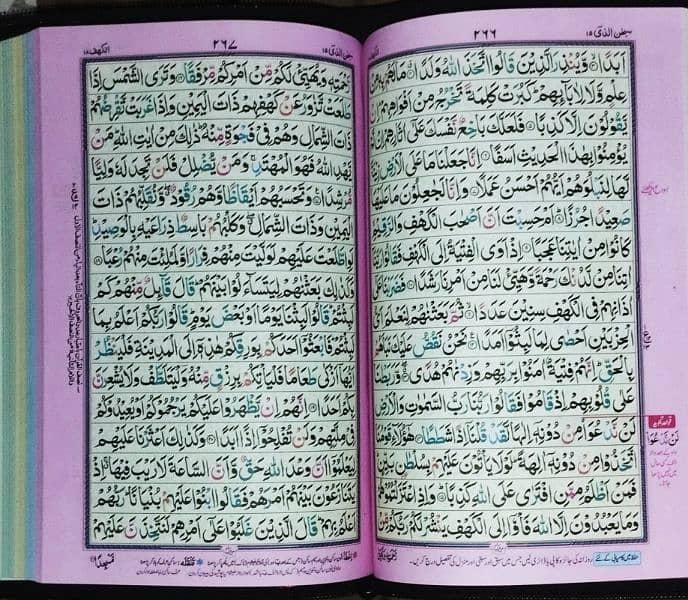 سبحٰن الذی ۱۵
۲۶۶
اَبَدًا ۙ وَّیُنْذِرَ الَّذِیْنَ قَالُوا اتَّخَذَ اللّٰهُ وَلَدًا ۗ مَا لَهُمْ بِهٖ مِنْ
عِلْمٍ وَّلَا لِاٰبَآىِٕهِمْ ؕ كَبُرَتْ كَلِمَةً تَخْرُجُ مِنْ اَفْوَاهِهِمْ ؕ اِنْ
یَّقُوْلُوْنَ اِلَّا كَذِبًا فَلَعَلَّكَ بَاخِعٌ نَّفْسَكَ عَلٰۤی اٰثَارِهِمْ اِنْ لَّمْ
یُؤْمِنُوْا بِهٰذَا الْحَدِیْثِ اَسَفًا اِنَّا جَعَلْنَا مَا عَلَی الْاَرْضِ زِیْنَةً
لَّهَا لِنَبْلُوَهُمْ اَیُّهُمْ اَحْسَنُ عَمَلًا وَاِنَّا لَجٰعِلُوْنَ مَا عَلَیْهَا
صَعِیْدًا جُرُزًا ؕ اَمْ حَسِبْتَ اَنَّ اَصْحٰبَ الْكَهْفِ وَالرَّقِیْمِ
كَانُوْا مِنْ اٰیٰتِنَا عَجَبًا اِذْ اَوَی الْفِتْیَةُ اِلَی الْكَهْفِ فَقَالُوْا رَبَّنَاۤ
اٰتِنَا مِنْ لَّدُنْكَ رَحْمَةً وَّهَیِّئْ لَنَا مِنْ اَمْرِنَا رَشَدًا فَضَرَبْنَا عَلٰۤی
اٰذَانِهِمْ فِی الْكَهْفِ سِنِیْنَ عَدَدًا ۙ ثُمَّ بَعَثْنٰهُمْ لِنَعْلَمَ اَیُّ
الْحِزْبَیْنِ اَحْصٰی لِمَا لَبِثُوْۤا اَمَدًا نَحْنُ نَقُصُّ عَلَیْكَ نَبَاَهُمْ
بِالْحَقِّ ؕ اِنَّهُمْ فِتْیَةٌ اٰمَنُوْا بِرَبِّهِمْ وَزِدْنٰهُمْ هُدًی ۖ وَّرَبَطْنَا
عَلٰی قُلُوْبِهِمْ اِذْ قَامُوْا فَقَالُوْا رَبُّنَا رَبُّ السَّمٰوٰتِ وَالْاَرْضِ
لَنْ نَّدْعُوَاۡ مِنْ دُوْنِهٖۤ اِلٰهًا لَّقَدْ قُلْنَاۤ اِذًا شَطَطًا هٰۤؤُلَآءِ قَوْمُنَا
اتَّخَذُوْا مِنْ دُوْنِهٖۤ اٰلِهَةً ؕ لَوْلَا یَاْتُوْنَ عَلَیْهِمْ بِسُلْطٰنٍۭ بَیِّنٍ ؕ
فَمَنْ اَظْلَمُ مِمَّنِ افْتَرٰی عَلَی اللّٰهِ كَذِبًا ؕ وَاِذِ اعْتَزَلْتُمُوْهُمْ
وَمَا یَعْبُدُوْنَ اِلَّا اللّٰهَ فَاْوٗۤا اِلَی الْكَهْفِ یَنْشُرْ لَكُمْ رَبُّكُمْ مِّنْ
لَنْ نَّدْعُوَاۡ
الكهف ۱۸
۲۶۷
سبحٰن الذی ۱۵
رَّحْمَتِهٖ وَیُهَیِّئْ لَكُمْ مِّنْ اَمْرِكُمْ مِّرْفَقًا وَتَرَی الشَّمْسَ اِذَا
طَلَعَتْ تَّزٰوَرُ عَنْ كَهْفِهِمْ ذَاتَ الْیَمِیْنِ وَاِذَا غَرَبَتْ تَّقْرِضُهُمْ
ذَاتَ الشِّمَالِ وَهُمْ فِیْ فَجْوَةٍ مِّنْهُ ؕ ذٰلِكَ مِنْ اٰیٰتِ اللّٰهِ ؕ مَنْ
یَّهْدِ اللّٰهُ فَهُوَ الْمُهْتَدِ ۚ وَمَنْ یُّضْلِلْ فَلَنْ تَجِدَ لَهٗ وَلِیًّا
مُّرْشِدًا وَتَحْسَبُهُمْ اَیْقَاظًا وَّهُمْ رُقُوْدٌ ۖ وَّنُقَلِّبُهُمْ ذَاتَ
الْیَمِیْنِ وَذَاتَ الشِّمَالِ ۖ وَكَلْبُهُمْ بَاسِطٌ ذِرَاعَیْهِ بِالْوَصِیْدِ ؕ
لَوِ اطَّلَعْتَ عَلَیْهِمْ لَوَلَّیْتَ مِنْهُمْ فِرَارًا وَّلَمُلِئْتَ مِنْهُمْ رُعْبًا
وَكَذٰلِكَ بَعَثْنٰهُمْ لِیَتَسَآءَلُوْا بَیْنَهُمْ ؕ قَالَ قَآىِٕلٌ مِّنْهُمْ كَمْ
لَبِثْتُمْ ؕ قَالُوْا لَبِثْنَا یَوْمًا اَوْ بَعْضَ یَوْمٍ ؕ قَالُوْا رَبُّكُمْ اَعْلَمُ بِمَا
لَبِثْتُمْ ؕ فَابْعَثُوْۤا اَحَدَكُمْ بِوَرِقِكُمْ هٰذِهٖۤ اِلَی الْمَدِیْنَةِ فَلْیَنْظُرْ
اَیُّهَاۤ اَزْكٰی طَعَامًا فَلْیَاْتِكُمْ بِرِزْقٍ مِّنْهُ وَلْیَتَلَطَّفْ وَلَا یُشْعِرَنَّ
بِكُمْ اَحَدًا اِنَّهُمْ اِنْ یَّظْهَرُوْا عَلَیْكُمْ یَرْجُمُوْكُمْ اَوْ یُعِیْدُوْكُمْ
فِیْ مِلَّتِهِمْ وَلَنْ تُفْلِحُوْۤا اِذًا اَبَدًا وَكَذٰلِكَ اَعْثَرْنَا عَلَیْهِمْ
لِیَعْلَمُوْۤا اَنَّ وَعْدَ اللّٰهِ حَقٌّ وَّاَنَّ السَّاعَةَ لَا رَیْبَ فِیْهَا ۚ اِذْ
یَتَنَازَعُوْنَ بَیْنَهُمْ اَمْرَهُمْ فَقَالُوا ابْنُوْا عَلَیْهِمْ بُنْیَانًا ؕ رَبُّهُمْ
اَعْلَمُ بِهِمْ ؕ قَالَ الَّذِیْنَ غَلَبُوْا عَلٰۤی اَمْرِهِمْ لَنَتَّخِذَنَّ عَلَیْهِمْ